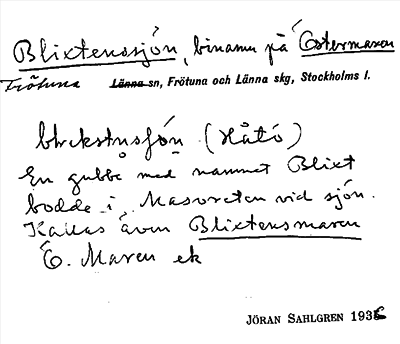 Blixtenssjön, binamn på Östermaren
Frötuna Länna sn, Frötuna och Länna skg, Stockholms l.
blıckstnssjón (Håtó)
En gubbe med namnet Blixt
bodde i Masoreten vid sjön.
Kallas även Blixtensmaren
E. Maren ek
JÖRAN SAHLGREN 1936